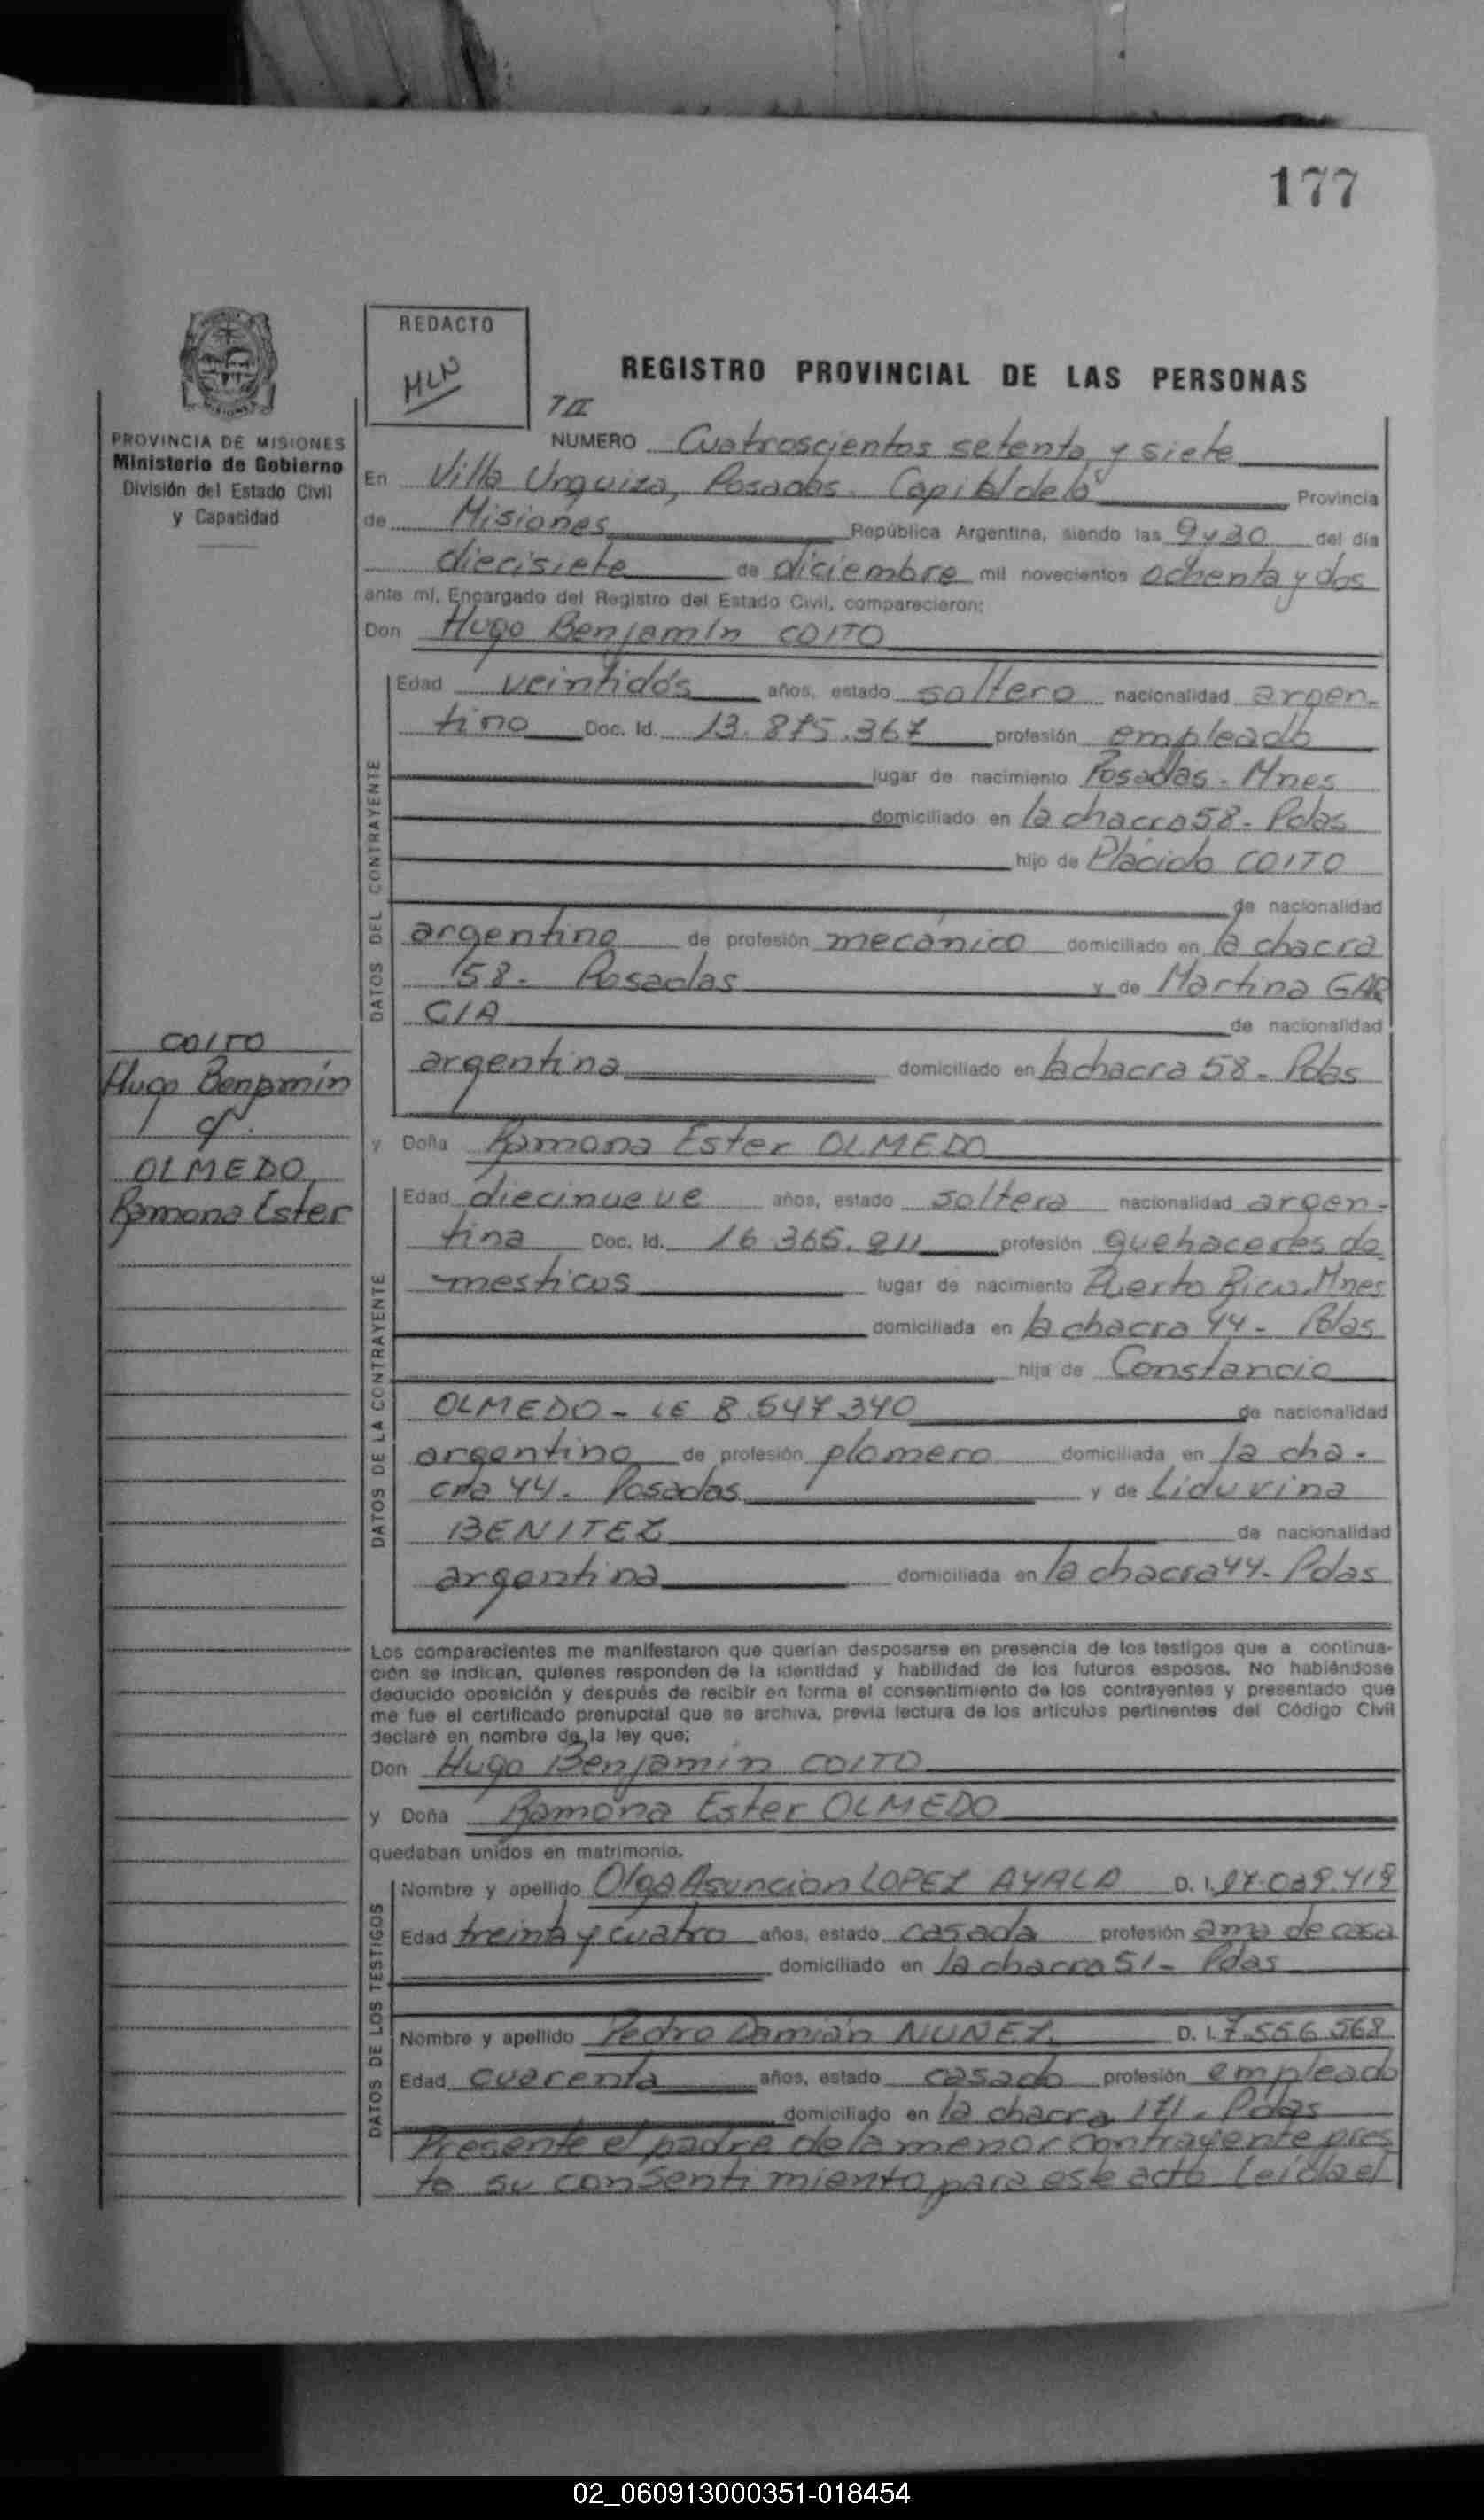 177
REDACTO
HLN
REGISTRO PROVINCIAL DE LAS PERSONAS
T II
PROVINCIA DE MISIONES
Ministerio de Gobierno
División del Estado Civil
y Capacidad
NUMERO Cuatroscientos setenta y siete
En Villa Urquiza, Posadas. Capital de la Provincia
de Misiones República Argentina, siendo las 9 y 30 del día
diecisiete de diciembre mil novecientos ochenta y dos
ante mí, Encargado del Registro del Estado Civil, comparecieron:
Don Hugo Benjamín COITO
DATOS DEL CONTRAYENTE
Edad veintidós años, estado soltero nacionalidad argen-
tino Doc. Id. 13.875.367 profesión empleado
lugar de nacimiento Posadas - Mnes
domiciliado en la chacra 58 - Pdas
hijo de Plácido COITO
de nacionalidad
argentino de profesión mecánico domiciliado en la chacra
58 - Posadas y de Martina GAR
CIA de nacionalidad
argentina domiciliado en la chacra 58 - Pdas
COITO
Hugo Benjamín
c/.
OLMEDO
Ramona Ester
y Doña Ramona Ester OLMEDO
DATOS DE LA CONTRAYENTE
Edad diecinueve años, estado soltera nacionalidad argen-
tina Doc. Id. 16.365.911 profesión quehaceres do
mesticos lugar de nacimiento Puerto Rico. Mnes
domiciliada en la chacra 44 - Pdas
hija de Constancio
OLMEDO - LE 8.547.340 de nacionalidad
argentino de profesión plomero domiciliada en la cha-
cra 44 - Posadas y de Liduvina
BENITEZ de nacionalidad
argentina domiciliada en la chacra 44 - Pdas
Los comparecientes me manifestaron que querían desposarse en presencia de los testigos que a continua-
ción se indican, quienes responden de la identidad y habilidad de los futuros esposos. No habiéndose
deducido oposición y después de recibir en forma el consentimiento de los contrayentes y presentado que
me fue el certificado prenupcial que se archiva, previa lectura de los artículos pertinentes del Código Civil
declaré en nombre de la ley que:
Don Hugo Benjamín COITO
y Doña Ramona Ester OLMEDO
quedaban unidos en matrimonio.
DATOS DE LOS TESTIGOS
Nombre y apellido Olga Asuncion LOPEZ AYALA D. I.
Edad treinta y cuatro años, estado casada profesión ama de casa
domiciliado en la chacra 51 - Pdas
Nombre y apellido Pedro Damián NUÑEZ D. I. 7.556.568
Edad cuarenta años, estado casado profesión empleado
domiciliado en la chacra 171 - Pdas
Presente el padre de la menor contrayente pres
ta su consentimiento para este acto leída el
02_060913000351-018454